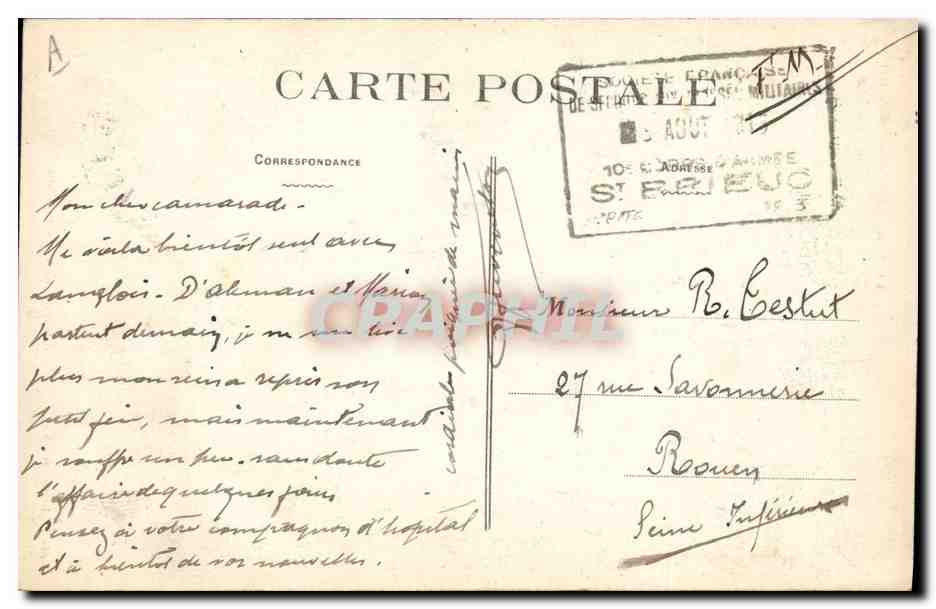 A
CARTE POSTALE
F.M.
SOCIÉTÉ FRANÇAISE
DE SECOURS AUX BLESSÉS MILITAIRES
5 AOUT
10e CORPS D'ARMÉE
ST BRIEUC
CORRESPONDANCE
ADRESSE
Mon cher camarade -
Me voila bientôt seul avec
Langlois - D'aleman et Marion
partent demain, je ne
plus mon rein a repris son
petit jeu, mais maintenant
je souffre un peu - sans doute
l'affaire de quelques jours
Pensez à votre compagnon d'hopital
et à bientôt de vos nouvelles.
cordiale poignée de main
Monsieur R. Testut
27 rue Savonnerie
Rouen
Seine Inférieure
CRAPHIL